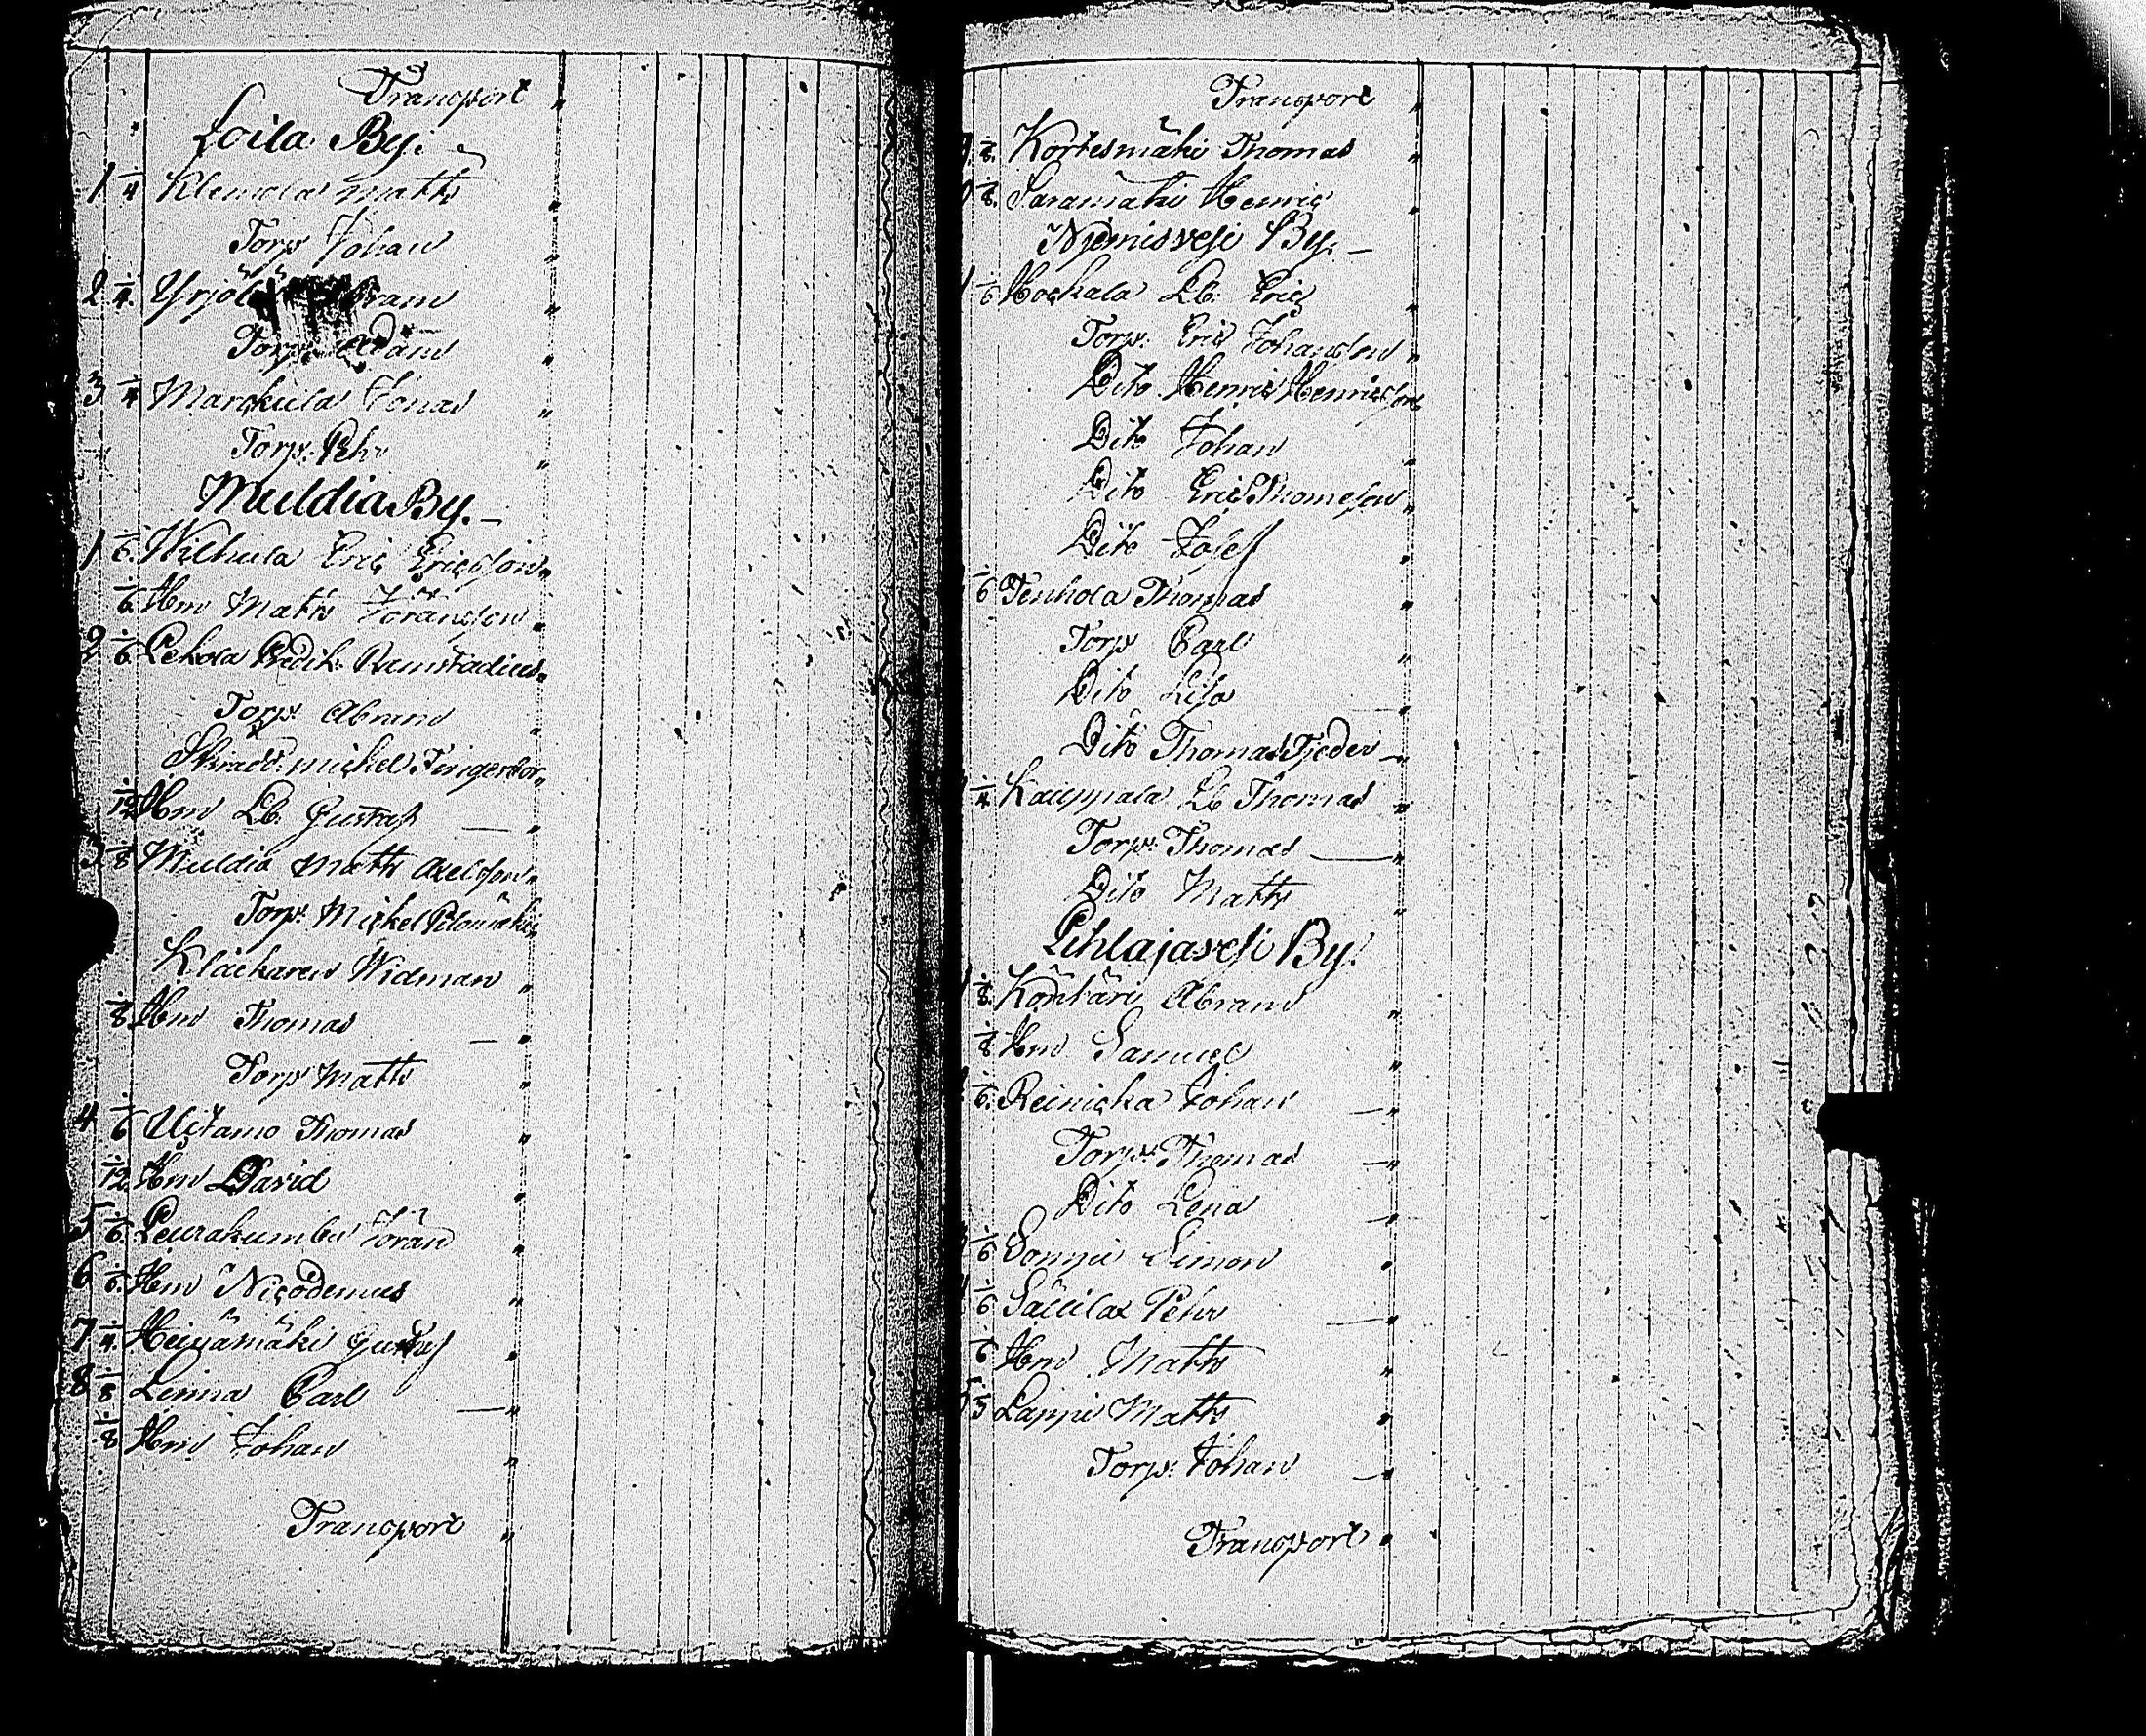 Transport "
Loila By.
1 1/4 Klemola Matts "
Torp. Johan "
2 1/4 Yrjölä Abram "
Torp. Adam "
3 1/4 Marckula Jonas "
Torp. Pehr "
Muldia By. —
1 1/6 Wilhula Eric Ericsson "
1/6 Hm Matts Göransson "
2 1/6 Pehola Prédik. Ramstadius "
Torp. Abram "
Skrädd. Michel Fingerbor "
1/12 Hm Lb. Gustaf — "
3 1/8 Muldia Matts Axelsson "
Torp. Mickel "
Klåckaren Widman "
1/8 Hm Thomas — "
Torp Matts "
4 1/6 Uitamo Thomas "
1/12 Hm David "
5 1/6 Peurakumbu Göran "
6 1/6 Hm Nicodemus "
7 1/4 Heinämäki Gustaf "
8 1/8 Leinna Carl — "
1/8 Hm Johan "
Transport "
Transport "
1/8 Kortesmäki Thomas "
1/8 Saramäki Henric "
Niemisvesi By. —
1 1/6 Hockala Lb. Eric "
Torp. Eric Johansson "
Dito Henric Henricsson
Dito Johan "
Dito Eric Thomesson "
Dito Josef "
1/6 Tenhola Thomas "
Torp Carl "
Dito Lisa "
Dito Thomas Tjeder —"
1/4 Kauppala Lb Thomas "
Torp. Thomas — "
Dito Matts "
Pihlajavesi By.
1 1/8 Köntäri Abram "
1/8 Hm Samuel "
1/6 Reinicka Johan — "
Torp. Thomas — "
Dito Lena — "
1/6 Soini Simon "
1/6 Sällilä Pehr — "
1/6 Hm Matts "
Lappi Matts "
Torp. Johan — "
Transport "